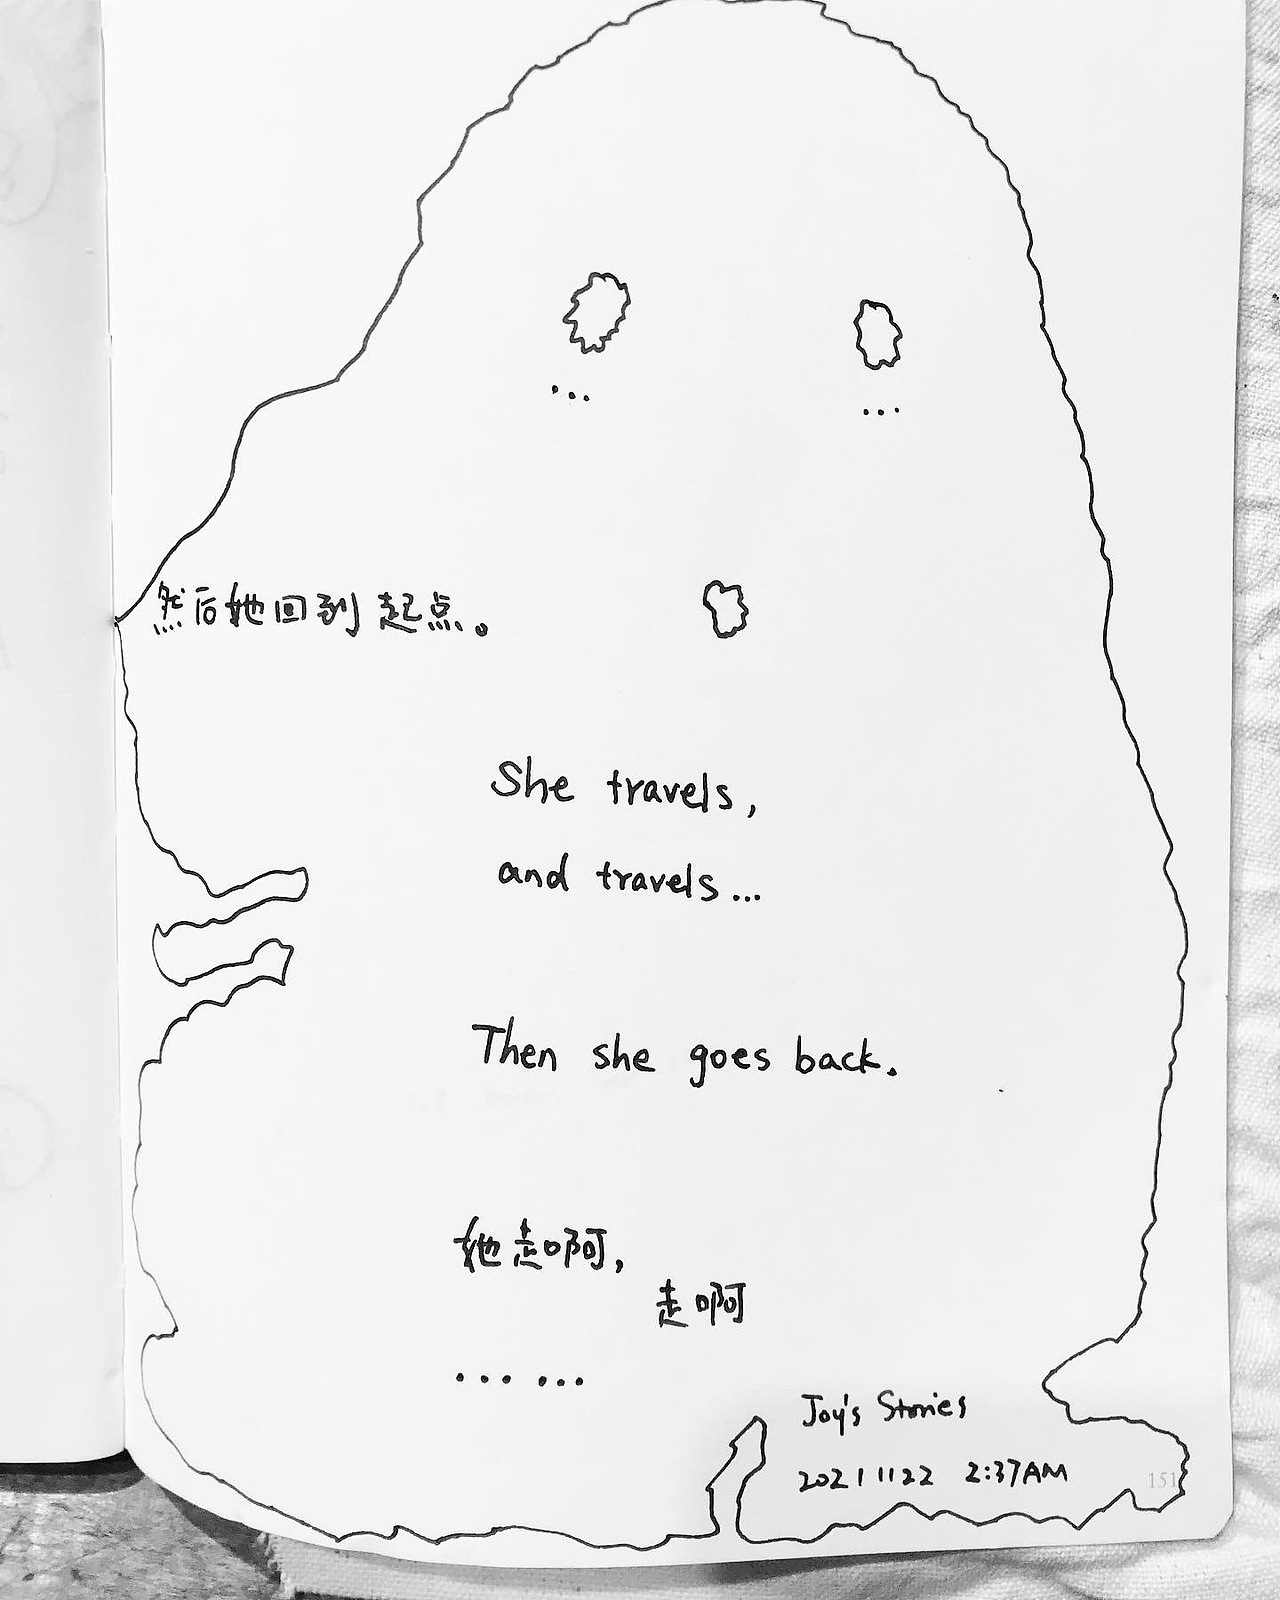 然后她回到起点。
She travels,
and travels...
Then she goes back.
她走啊,
走啊
... ...
Joy's Stories
20211122 2:37AM
151